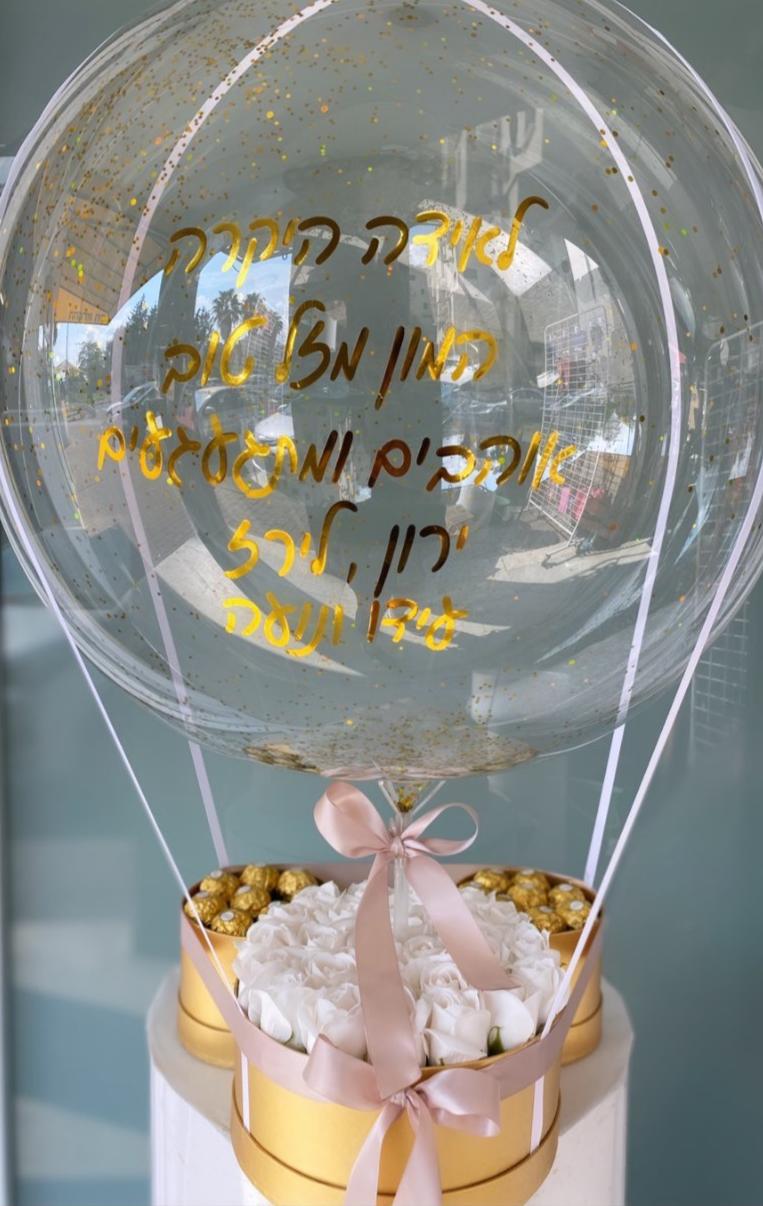 לאידה היקרה
המון מזל טוב
אוהבים ומתגעגעים
ירון, לירז
עידו ונועה